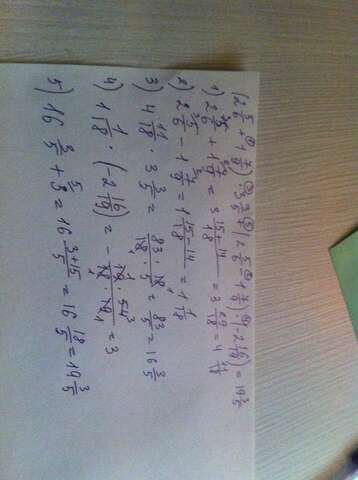 (2 5/6 + 1 7/9) · 3 3/5 - (2 5/6 - 1 7/9) · (-2 16/19) = 19 3/5
1) 2 5/6 + 1 7/9 = 3 15+14/18 = 3 29/18 = 4 11/18
2) 2 5/6 - 1 7/9 = 1 15-14/18 = 1 1/18
3) 4 11/18 · 3 3/5 = 83/18 · 18/5 = 83/5 = 16 3/5
4) 1 1/18 · (-2 16/19) = - 19 · 54/18 · 19 = 3
5) 16 3/5 + 3 = 16 3+15/5 = 16 18/5 = 19 3/5